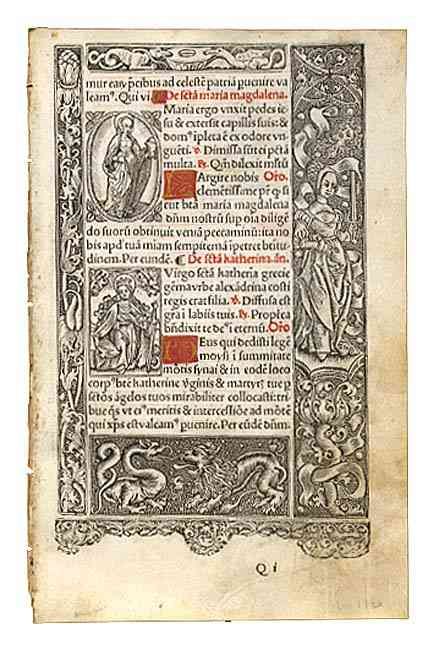 mur eaꝝ p̄cibus ad celestē patriā ꝑuenire va
leamꝰ. Qui vi De sctā maria magdalena.
Maria ergo vnxit pedes ie
su & extersit capillis suis: &
domꝰ īpleta ē ex odore vn-
guēti. ꝟ. Dimissa sūt ei pctā
multa. ꝶ. Qm̄ dilexit mltū
Largire nobis Oro.
clemētissime pr̄ ꝙ si
cut btā maria magdalena
dn̄m nostrū sup oīa diligē
do suorū obtinuit veniā peccaminū: ita no
bis apd' tuā miam sempiternā īpetret btitu
dinem. Per eundē. ¶ De sctā katherina. ān.
Virgo sctā katheria grecie
gēma vrbe alexādrina costi
regis erat filia. ꝟ. Diffusa est
gra ī labiis tuis. ꝶ. Propea
bn̄dixit te deꝰ ī eternū. Oro
Deus qui dedisti legē
moysi ī summitate
mōtis synai & in eodē loco
corpꝰ btē katherine v̄ginis & martyrꝭ tue p
sctōs āgelos tuos mirabiliter collocasti: tri
bue q̄s vt eiꝰ meritis & intercessiōe ad mōtē
qui xp̄s est valeamꝰ ꝑuenire. Per eūdē dn̄m.
Q i